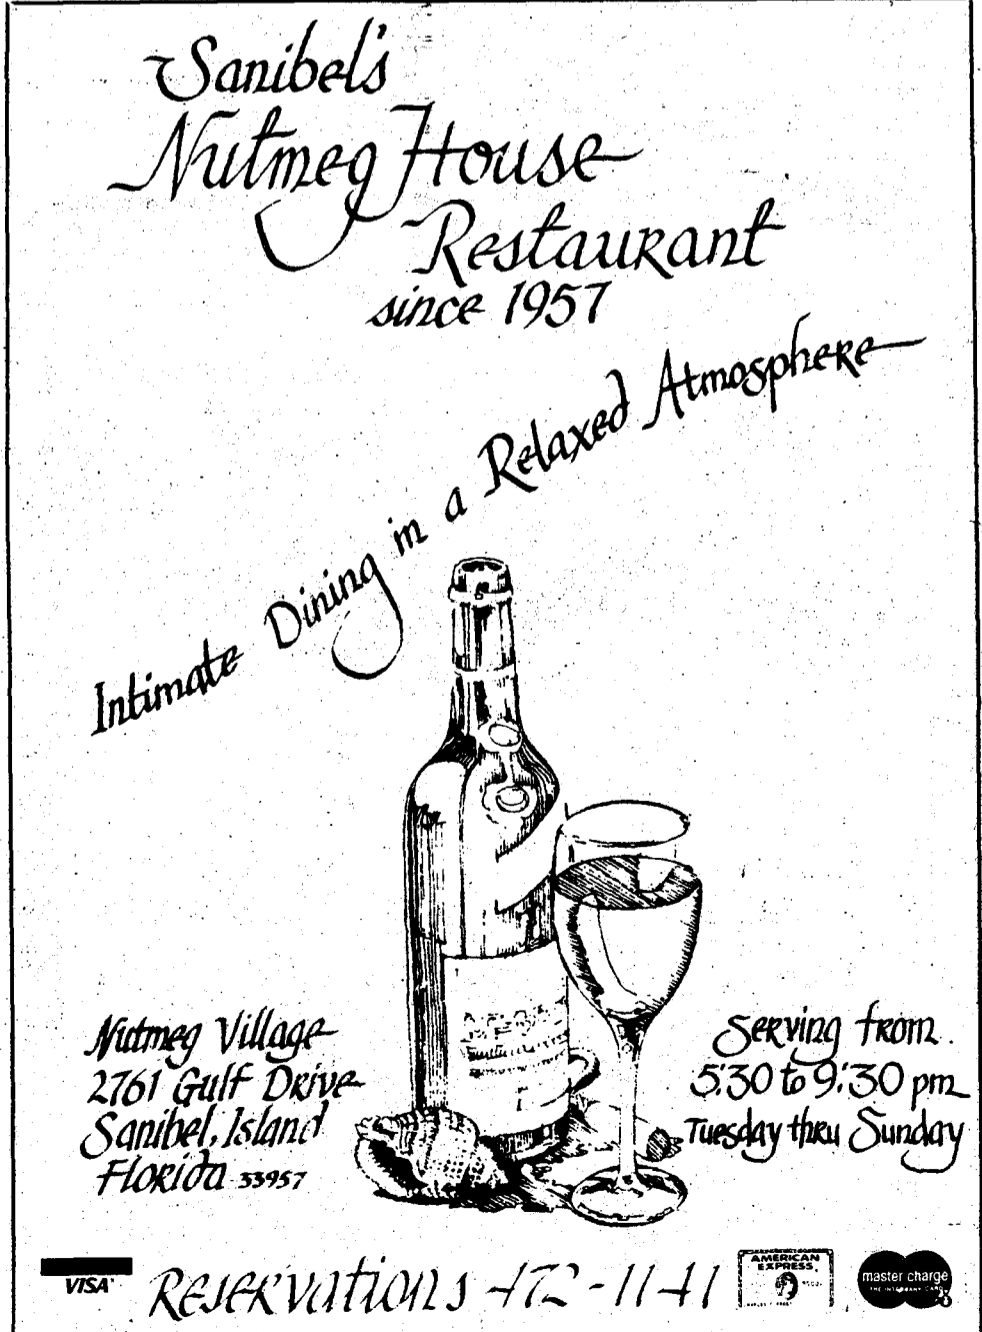 Sanibel's
Nutmeg House
Restaurant
since 1957
Intimate Dining in a Relaxed Atmosphere
Nutmeg Village
2761 Gulf Drive
Sanibel, Island
Florida 33957
Serving from
5:30 to 9:30 pm
Tuesday thru Sunday
VISA
Reservations 472-1141
AMERICAN
EXPRESS
master charge
THE INTERBANK CARD